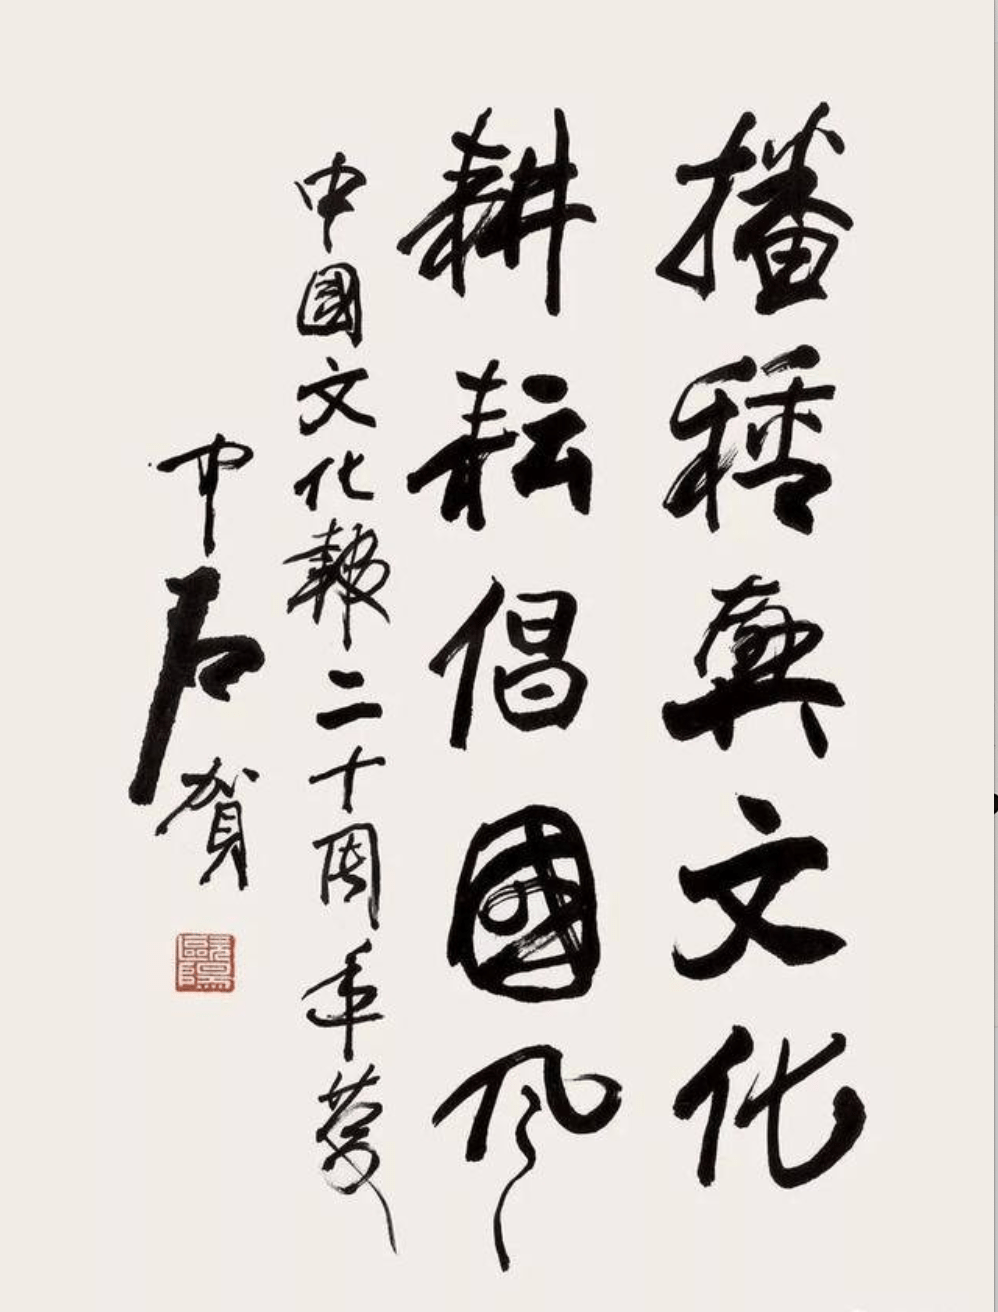 播種興文化
耕耘倡國風
中國文化報二十周年
中石賀
歐陽